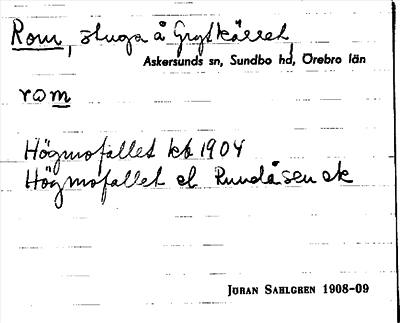 Rom, stuga å Grytkärret,
Askersunds sn, Sundbo hd, Örebro län
rom
Högmofallet kb 1904
Högmofallet el Rundåsen ek
Jöran Sahlgren 1908-09